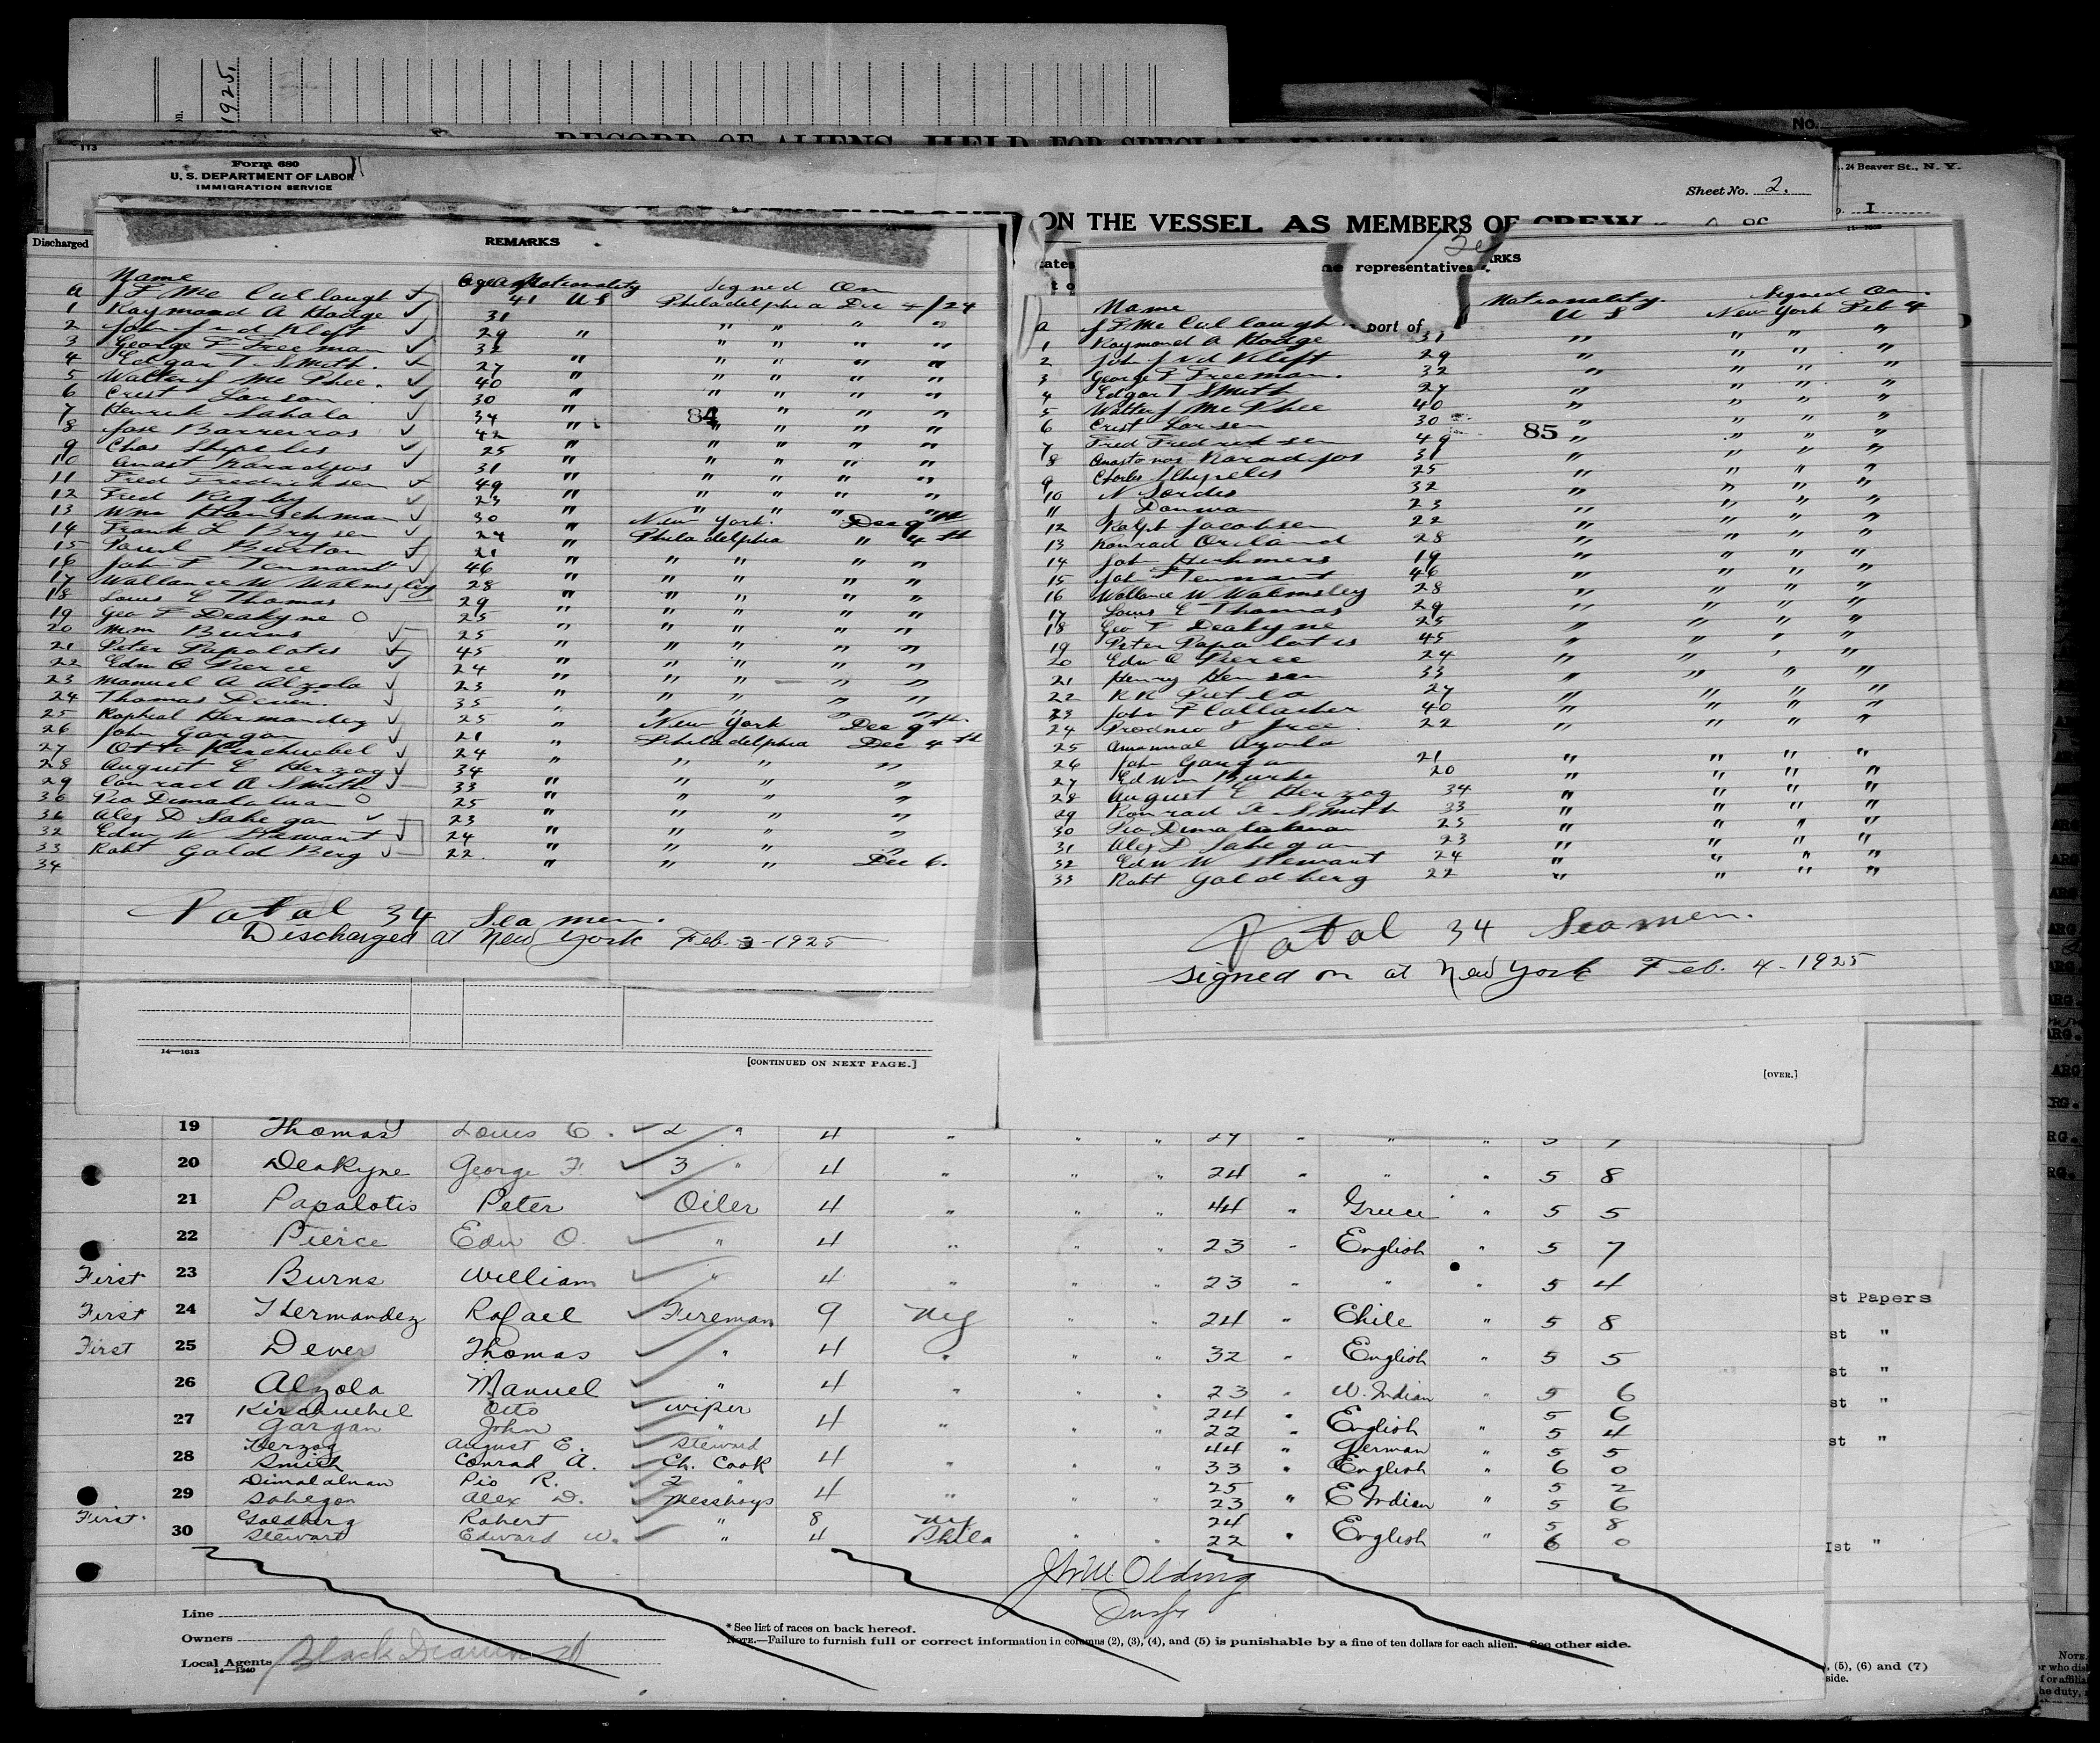 1925.
RECORD OF ALIENS HELD FOR SPECIAL
No.
113
Form 680
U. S. DEPARTMENT OF LABOR
IMMIGRATION SERVICE
Sheet No. 2.
24 Beaver St., N. Y.
I
ON THE VESSEL AS MEMBERS OF CREW
Discharged
REMARKS
Name Age Nationality Signed On
a J F McCullough 41 U S Philadelphia Dec 4/24
1 Raymond A Hodge 31 " " " "
2 John J v d Kleft 29 " " " " "
3 George F Freeman 32 " " " "
4 Edgar T Smith. 27 " " " " "
5 Walter J McPhee. 40 " " " " "
6 Crist Larson 30 " " " " "
7 Henrik Sahala 34 " 84 " " "
8 Jose Barreiros 42 " " " " "
9 Chas Shipelis 25 " " " " "
10 Anast Karadjos 31 " " " " "
11 Fred Fredricksen 49 " " " " "
12 Fred Rigby 23 " " " " "
13 Wm Hanschman 30 " New York. Dec 9th
14 Frank L Brysen 24 " Philadelphia " 4th
15 Paul Burton 21 " " " " "
16 John F Tennant 46 " " " " "
17 Wallance W Walmsley 28 " " " " "
18 Louis E Thomas 29 " " " " "
19 Geo F Deakyne 25 " " " " "
20 Wm Burns 25 " " " " "
21 Peter Papalotis 45 " " " " "
22 Edw O Pierce 24 " " " " "
23 Manuel A Alzola 23 " " " " "
24 Thomas Dever. 35 " " " " "
25 Raphial Hermandez 25 " New York Dec 9th
26 John Gargan 21 " Philadelphia Dec 4th
27 Otto Kirschuebel 24 " " " "
28 August E Herzog 34 " " " "
29 Conrad A Smith 33 " " " "
30 Pio Dimalaluan 25 " " " "
Alex D Sahegan 23 " " " "
32 Edw W Stewart 24 " " " "
33 Robt Gold Berg 22. " " " Dec 6.
34
Total 34 Seamen.
Discharged at New York Feb. 3-1925
ates
to
the representatives
port of
RKS
Name Nationality. Signed On.
a J F McCullough U S New York Feb 4
1 Raymond A Hodge 31 " " " "
2 John J v d Kleft 29 " " " "
3 George F Freeman. 32 " " " "
4 Edgar T Smith 27 " " " "
5 Walter J McPhee 40 " " " "
6 Crist Larsen 30 " " " "
7 Fred Fredricksen 49 85 " " " "
8 Anastonas Karadjos 31 " " " "
9 Charles Shipelis 25 " " " "
10 N Sordis 32 " " " "
11 J Donwan 23 " " " "
12 Ralph Jacobsen 22 " " " "
13 Konrad Orland 28 " " " "
14 John Hichmers 19 " " " "
15 John F Tennant 46 " " " "
16 Wallance W Walmsley 28 " " " "
17 Louis E Thomas 29 " " " "
18 Geo F Deakyne 25 " " " "
19 Peter Papalotis 45 " " " "
20 Edw O Pierce 24 " " " "
21 Henry Hensen 33 " " " "
22 K K Pietla 27 " " " "
23 John F Callacher 40 " " " "
24 22 " " " "
25 Amanual Azola
26 John Gargan 21 " " " "
27 Edwin Burke 20 " " " "
28 August E Herzog 34 " " " "
29 Konrad A Smith 33 " " " "
30 Pio Dimalaluan 25 " " " "
31 Alex D Sahegan 23 " " " "
32 Edw W Stewart 24 " " " "
33 Robt Goldberg 22 " " " "
Total 34 Seamen.
signed on at New York Feb. 4-1925
14—1613
[CONTINUED ON NEXT PAGE.]
[OVER.]
19 Thomas Louis E. 2 " 4 " " " 29 " " " 5 7
20 Deakyne George F. 3 " 4 " " " 24 " " " 5 8
21 Papalotis Peter Oiler 4 " " " 44 " Greece " 5 5
22 Pierce Edw O. " 4 " " " 23 " English " 5 7
First 23 Burns William " 4 " " " 23 " " " 5 4
First 24 Hermandez Rafael Fireman 9 NY " " 24 " Chile " 5 8
First 25 Dever Thomas " 4 " " " 32 " English " 5 5
26 Alzola Manuel " 4 " " " 23 " W. Indian " 5 6
Kirschuebel Otto Wiper 24 5 6
27 Gargan John " 4 " " " 22 " English " 5 4
Herzog August E. Steward 44 " German " 5 5
28 Smith Conrad A. Ch. Cook 4 " " " 33 " English " 6 0
Dimalaluan Pio R. 2 " 25 5 2
29 Sahegan Alex D. Messboys 4 " " " 23 " E Indian " 5 6
First Goldberg Robert " 8 NY 24 5 8
30 Stewart Edward W. " 4 Phila " " 22 " English " 6 0
st Papers
st "
st "
st "
st "
Ist "
Line
Owners
Local Agents
14—1240
* See list of races on back hereof.
NOTE.—Failure to furnish full or correct information in columns (2), (3), (4), and (5) is punishable by a fine of ten dollars for each alien. See other side.
, (5), (6) and (7)
side.
NOTE.
or who
of or
the duty,